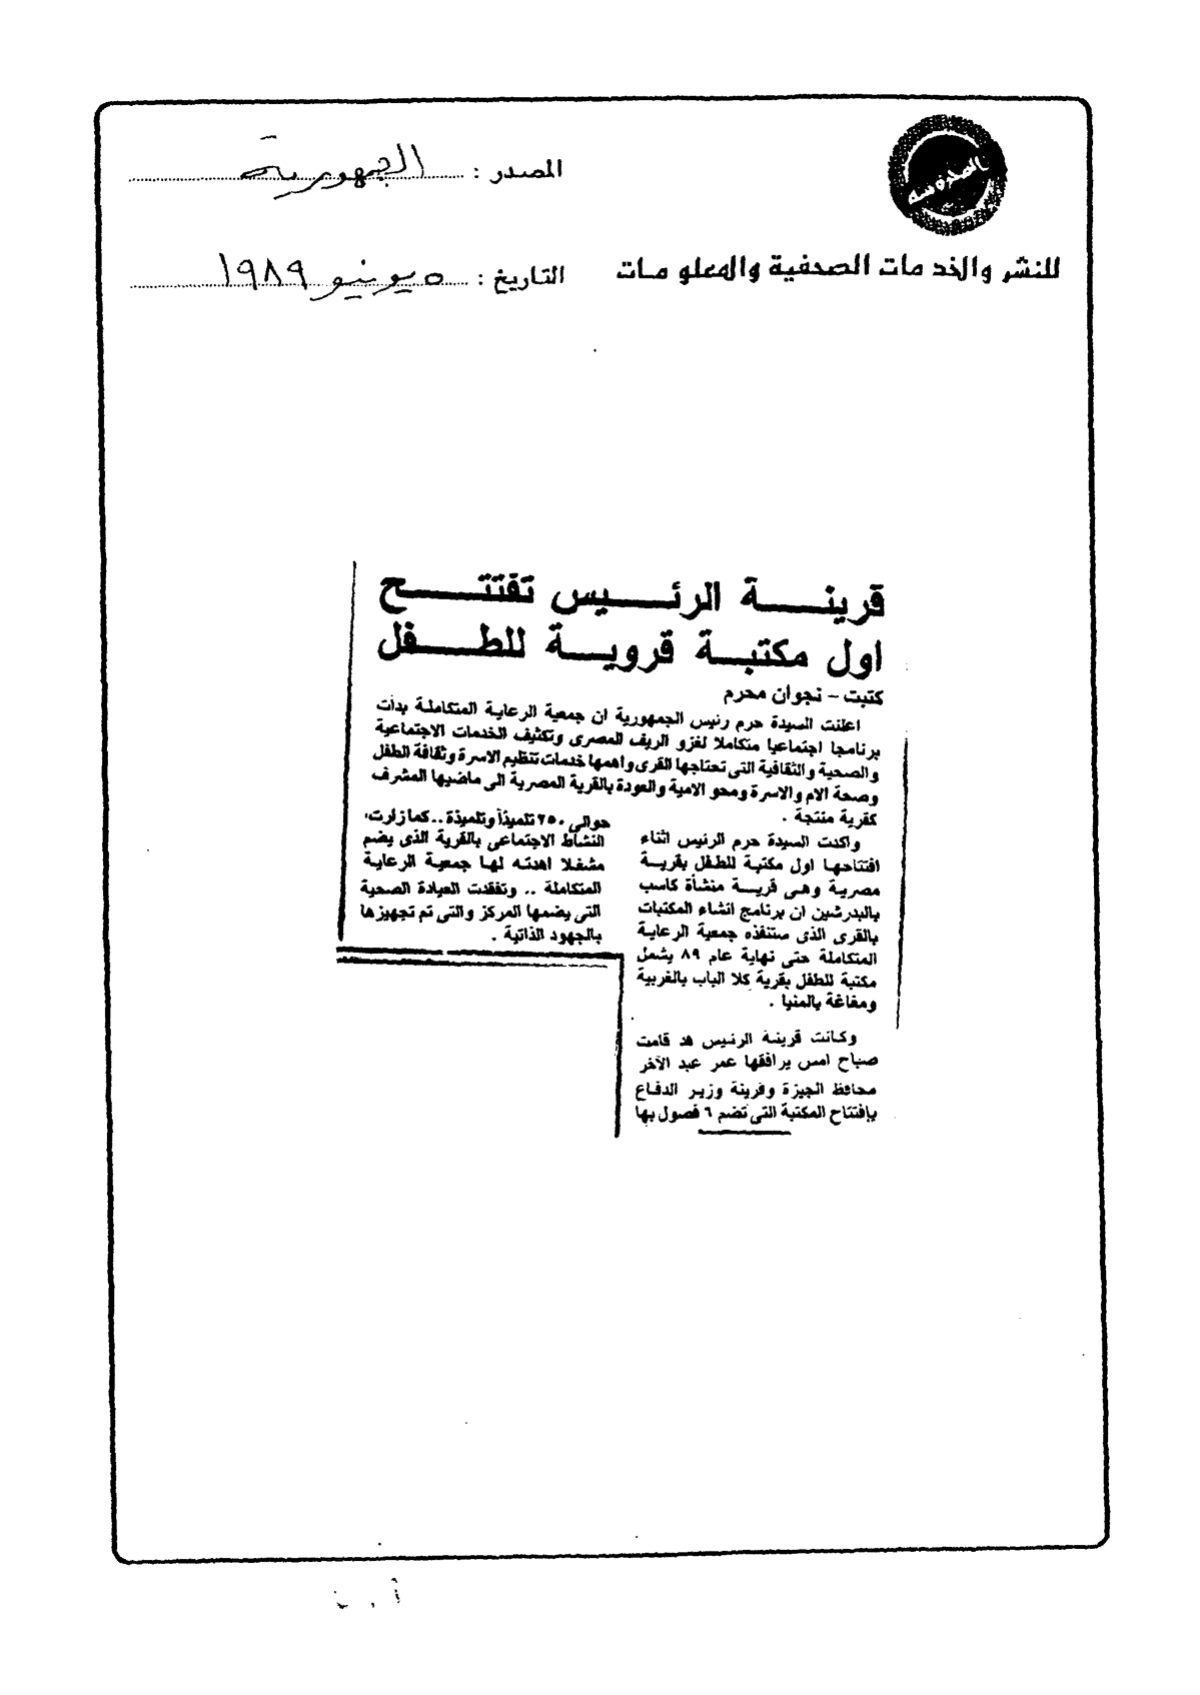 المصدر : الجمهورية
للنشر والخدمات الصحفية والمعلومات
التاريخ : ٥ يونيو ١٩٨٩
قرينة الرئيس تفتتح
اول مكتبة قروية للطفل
كتبت – نجوان محرم
اعلنت السيدة حرم رئيس الجمهورية ان جمعية الرعاية المتكاملة بدأت
برنامجا اجتماعيا متكاملا لغزو الريف المصرى وتكثيف الخدمات الاجتماعية
والصحية والثقافية التى تحتاجها القرى واهمها خدمات تنظيم الاسرة وثقافة الطفل
وصحة الام والاسرة ومحو الامية والعودة بالقرية المصرية الى ماضيها المشرف
كقرية منتجة .
واكدت السيدة حرم الرئيس اثناء
افتتاحها اول مكتبة للطفل بقرية
مصرية وهى قرية منشأة كاسب
بالبدرشين ان برنامج انشاء المكتبات
بالقرى الذى ستنفذه جمعية الرعاية
المتكاملة حتى نهاية عام ٨٩ يشمل
مكتبة للطفل بقرية كلا الباب بالغربية
ومغاغة بالمنيا .
وكانت قرينة الرئيس قد قامت
صباح امس يرافقها عمر عبد الآخر
محافظ الجيزة وقرينة وزير الدفاع
بإفتتاح المكتبة التى تضم ٦ فصول بها
حوالى ٢٥٠ تلميذاً وتلميذة .. كما زارت
النشاط الاجتماعى بالقرية الذى يضم
مشغلا اهدته لها جمعية الرعاية
المتكاملة .. وتفقدت العيادة الصحية
التى يضمها المركز والتى تم تجهيزها
بالجهود الذاتية .